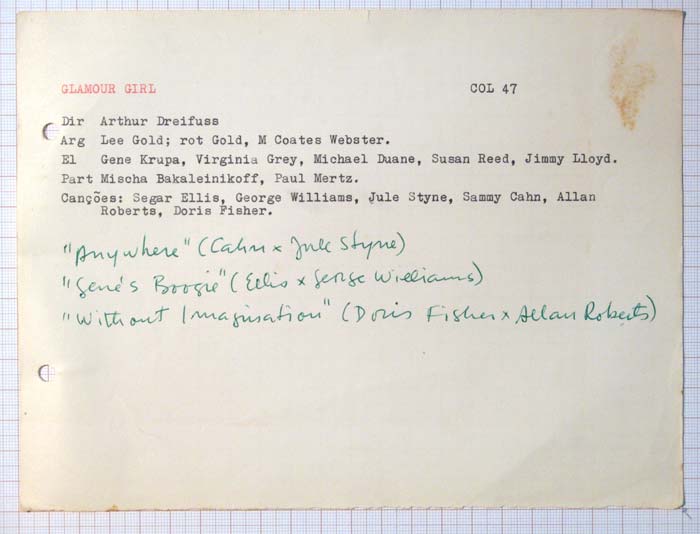 GLAMOUR GIRL COL 47
Dir Arthur Dreifuss
Arg Lee Gold; rot Gold, M Coates Webster.
El Gene Krupa, Virginia Grey, Michael Duane, Susan Reed, Jimmy Lloyd.
Part Mischa Bakaleinikoff, Paul Mertz.
Canções: Segar Ellis, George Williams, Jule Styne, Sammy Cahn, Allan
Roberts, Doris Fisher.
"Anywhere" (Cahn x Jule Styne)
"Gene's Boogie" (Ellis x George Williams)
"Without Imagination" (Doris Fisher x Allan Roberts)